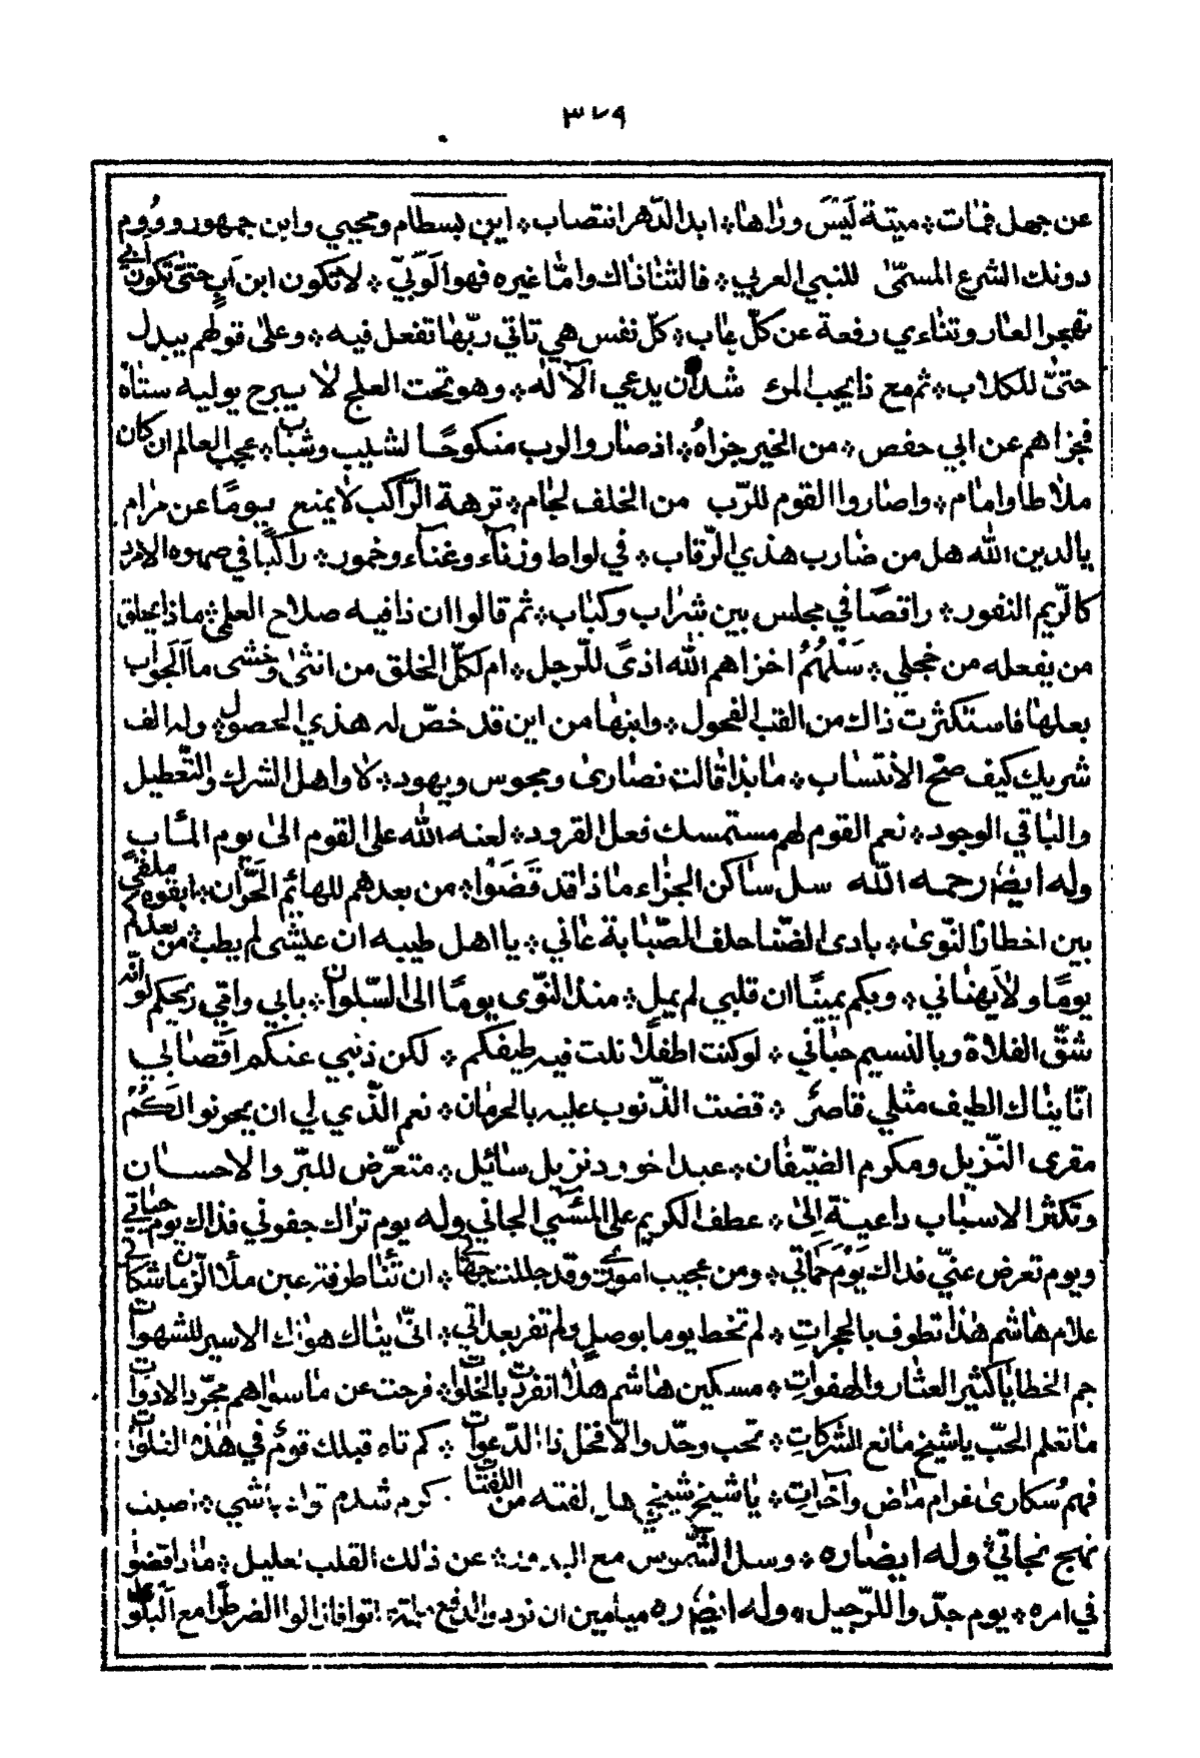 ٣٧٩
عن جهل فمات * ميتة لَيْسَ وراها * ابد الدّهر انتصاب * ابن بسطام ومحيي وابن جمهور ورُوم
دونك الشرع المسمّى للنبي العربي * فالثنا ذاك وامّا غيره فهو الوَبيّ * لا تكون ابن اَبٍ حتىّ تكون أبي
تهجر العار وتناءي رفعة عن كلّ عاب * كلّ نفس هي تاتي ربّها تفعل فيه * وعلى قولهم يبدل
حتىّ للكلاب * ثم مع ذا يجب المرء شدان يدعي الآله * وهو تحت العلج لا يبرح يوليه ستاه
فجزاهم عن ابي حفص * من الخير جزاهُ * اذ صار والرب منكوحًا لشيب وشباب * عجب العالم ان كان
ملاطا وامام * واصاروا القوم للرّب من الخلف لجام * ترهة الرّاكب لا يمنع يومًا عن مرام
يا لدين الله هل من ضارب هذي الرّقاب * في لواط وزناء وغناء وخمور * راكبًا في صهوه الامرد
كالرّيم النفور * راقصًا في مجلس بين شراب وكباب * ثم قالوا ان ذا فيه صلاح العلمي * ماذا يخلق
من يفعله من خجلي * سَلْهُمُ اخزاهم الله اذىً للرّجل * ام لكلّ الخلق من انثى وخنثى ما الَجواب
بعلها فاستكثرت ذاك من القب الفحول * وابنها من اين قد خصّ له هذي الحصول * وله الف
شريك كيف صحّ الانتساب * ما بذا قالت نصارى ومجوس ويهود * لا واهل الشرك والتّعطيل
والباقي الوجود * نعم القوم لهم مستمسك فعل القرود * لعنه الله على القوم الى يوم المئاب
وله ايضا رحمه الله سل ساكن الجزاء ماذا قد قَضَوْا * من بعدهم للهائم الحَرّان * ابقوه ملقىً
بين اخطار النّوى * بادى الضّنا حلف الصّبابة عاني * يا اهل طيبه ان عيشى لم يطب * من بعدكم
يومًا ولا يهناني * وبكم يمينًا ان قلبي لم يمل * منذ النّوى يومًا الى السّلوان * بابي وامّي ريحكم لو انّه
شقّ الفلاة وبالنسيم حباني * لو كنت اطفلا نلت فيه طيفكم * لكن ذنبي عنكم اقصاني
انّا يناك الطيف مثلي قاصرٌ * قضت الذّنوب عليه بالحرمان * نعم الذّي لي ان يحرنوا لكُمُ
مقرى النّزيل ومكرم الضيّفان * عبدا خويد نزيل سائل * متعرّض للبرّ والاحسان
وتكثر الاسباب داعية اِلى * عطف الكريم على المسَّىء الجاني وله يوم تراك جفوني فذاك يوم حياتي
ويوم تعرض عنّي فذاك يَوْمَ حَمَاتي * ومن عجيب اموت وقد جللت جهاتي * ان تنا طرفة عين ملأ الزّمان شكاتي
علام هاشم هذا تطوف بالحجراتِ * لم تخط يوما بوصلٍ ولم تفر بعداتي * انّى يناك هواك الاسير للشهوات
جم الخطايا كثير العثار والهفواتِ * مسكين هاشم هلا انفردت بالخلوات * فرحت عن ما سواهم مجّرد الادوات
ما تعلم الحّب يا شيخ مانع الشركاتِ * تحب وحّد والاّ فخل ذا الدّعوات * كم تاه قبلك قومٌ في هذه الفلوات
فهمُ سكارى غرام ماض وآخراتِ * يا شيخ شيخي هل لفته من اللفتات * كرم شدم تواد باشي * اصبت
نهج نجاتي وله ايضاره * وسل الشّموس مع البدور * عن ذلك القلب العليل * ماذا قضوا
في امره * يوم جدّوا للرّحيل * وله ايضا ره ميامين ان نودوا لدفع ملمّة * اتوا فازالوا الضر طرّا مع البلوى